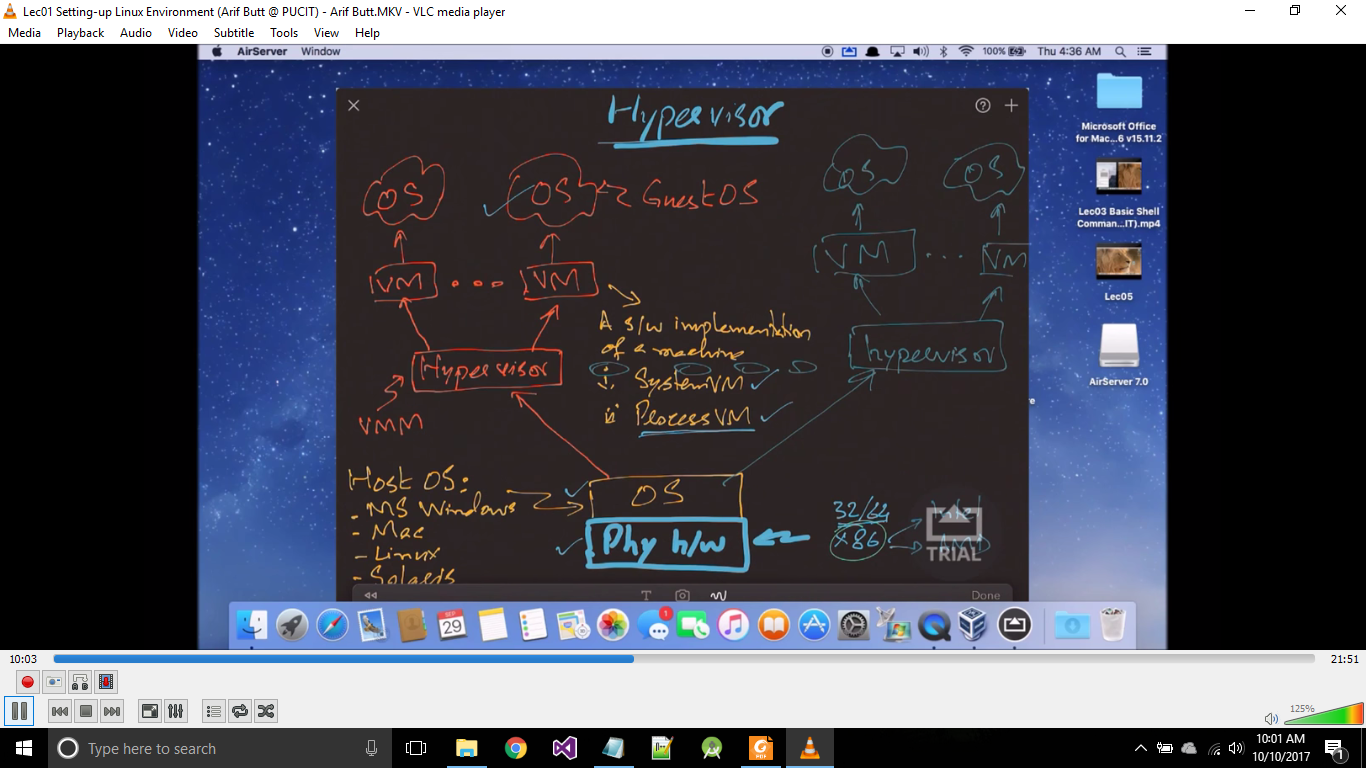 Lec01 Setting-up Linux Environment (Arif Butt @ PUCIT) - Arif Butt.MKV - VLC media player
Media Playback Audio Video Subtitle Tools View Help
AirServer Window 100% Thu 4:36 AM
Hypervisor
OS OS Guest OS OS OS
VM ... VM VM ... VM
A s/w implementation
of a machine
i. System VM
ii Process VM
Hypervisor hypervisor
VMM
Host OS:
- MS Windows
- Mac
- Linux
- Solaris
OS
Phy h/w
32/64
x86
Intel
AMD
TRIAL
T Done
Microsoft Office
for Mac...6 v15.11.2
Lec03 Basic Shell
Comman...IT).mp4
Lec05
AirServer 7.0
SEP
29
1
10:03 21:51
125%
Type here to search
PDF
10:01 AM
10/10/2017
1